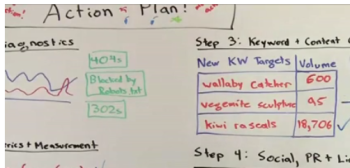 Action Plan!
Diagnostics
404s
Blocked by
Robots.txt
302s
Step 3: Keyword + Content
New KW Targets Volume
wallaby catcher 600
vegemite sculpture 95
kiwi rascals 18,706
Measurement
Step 4: Social, PR + Li